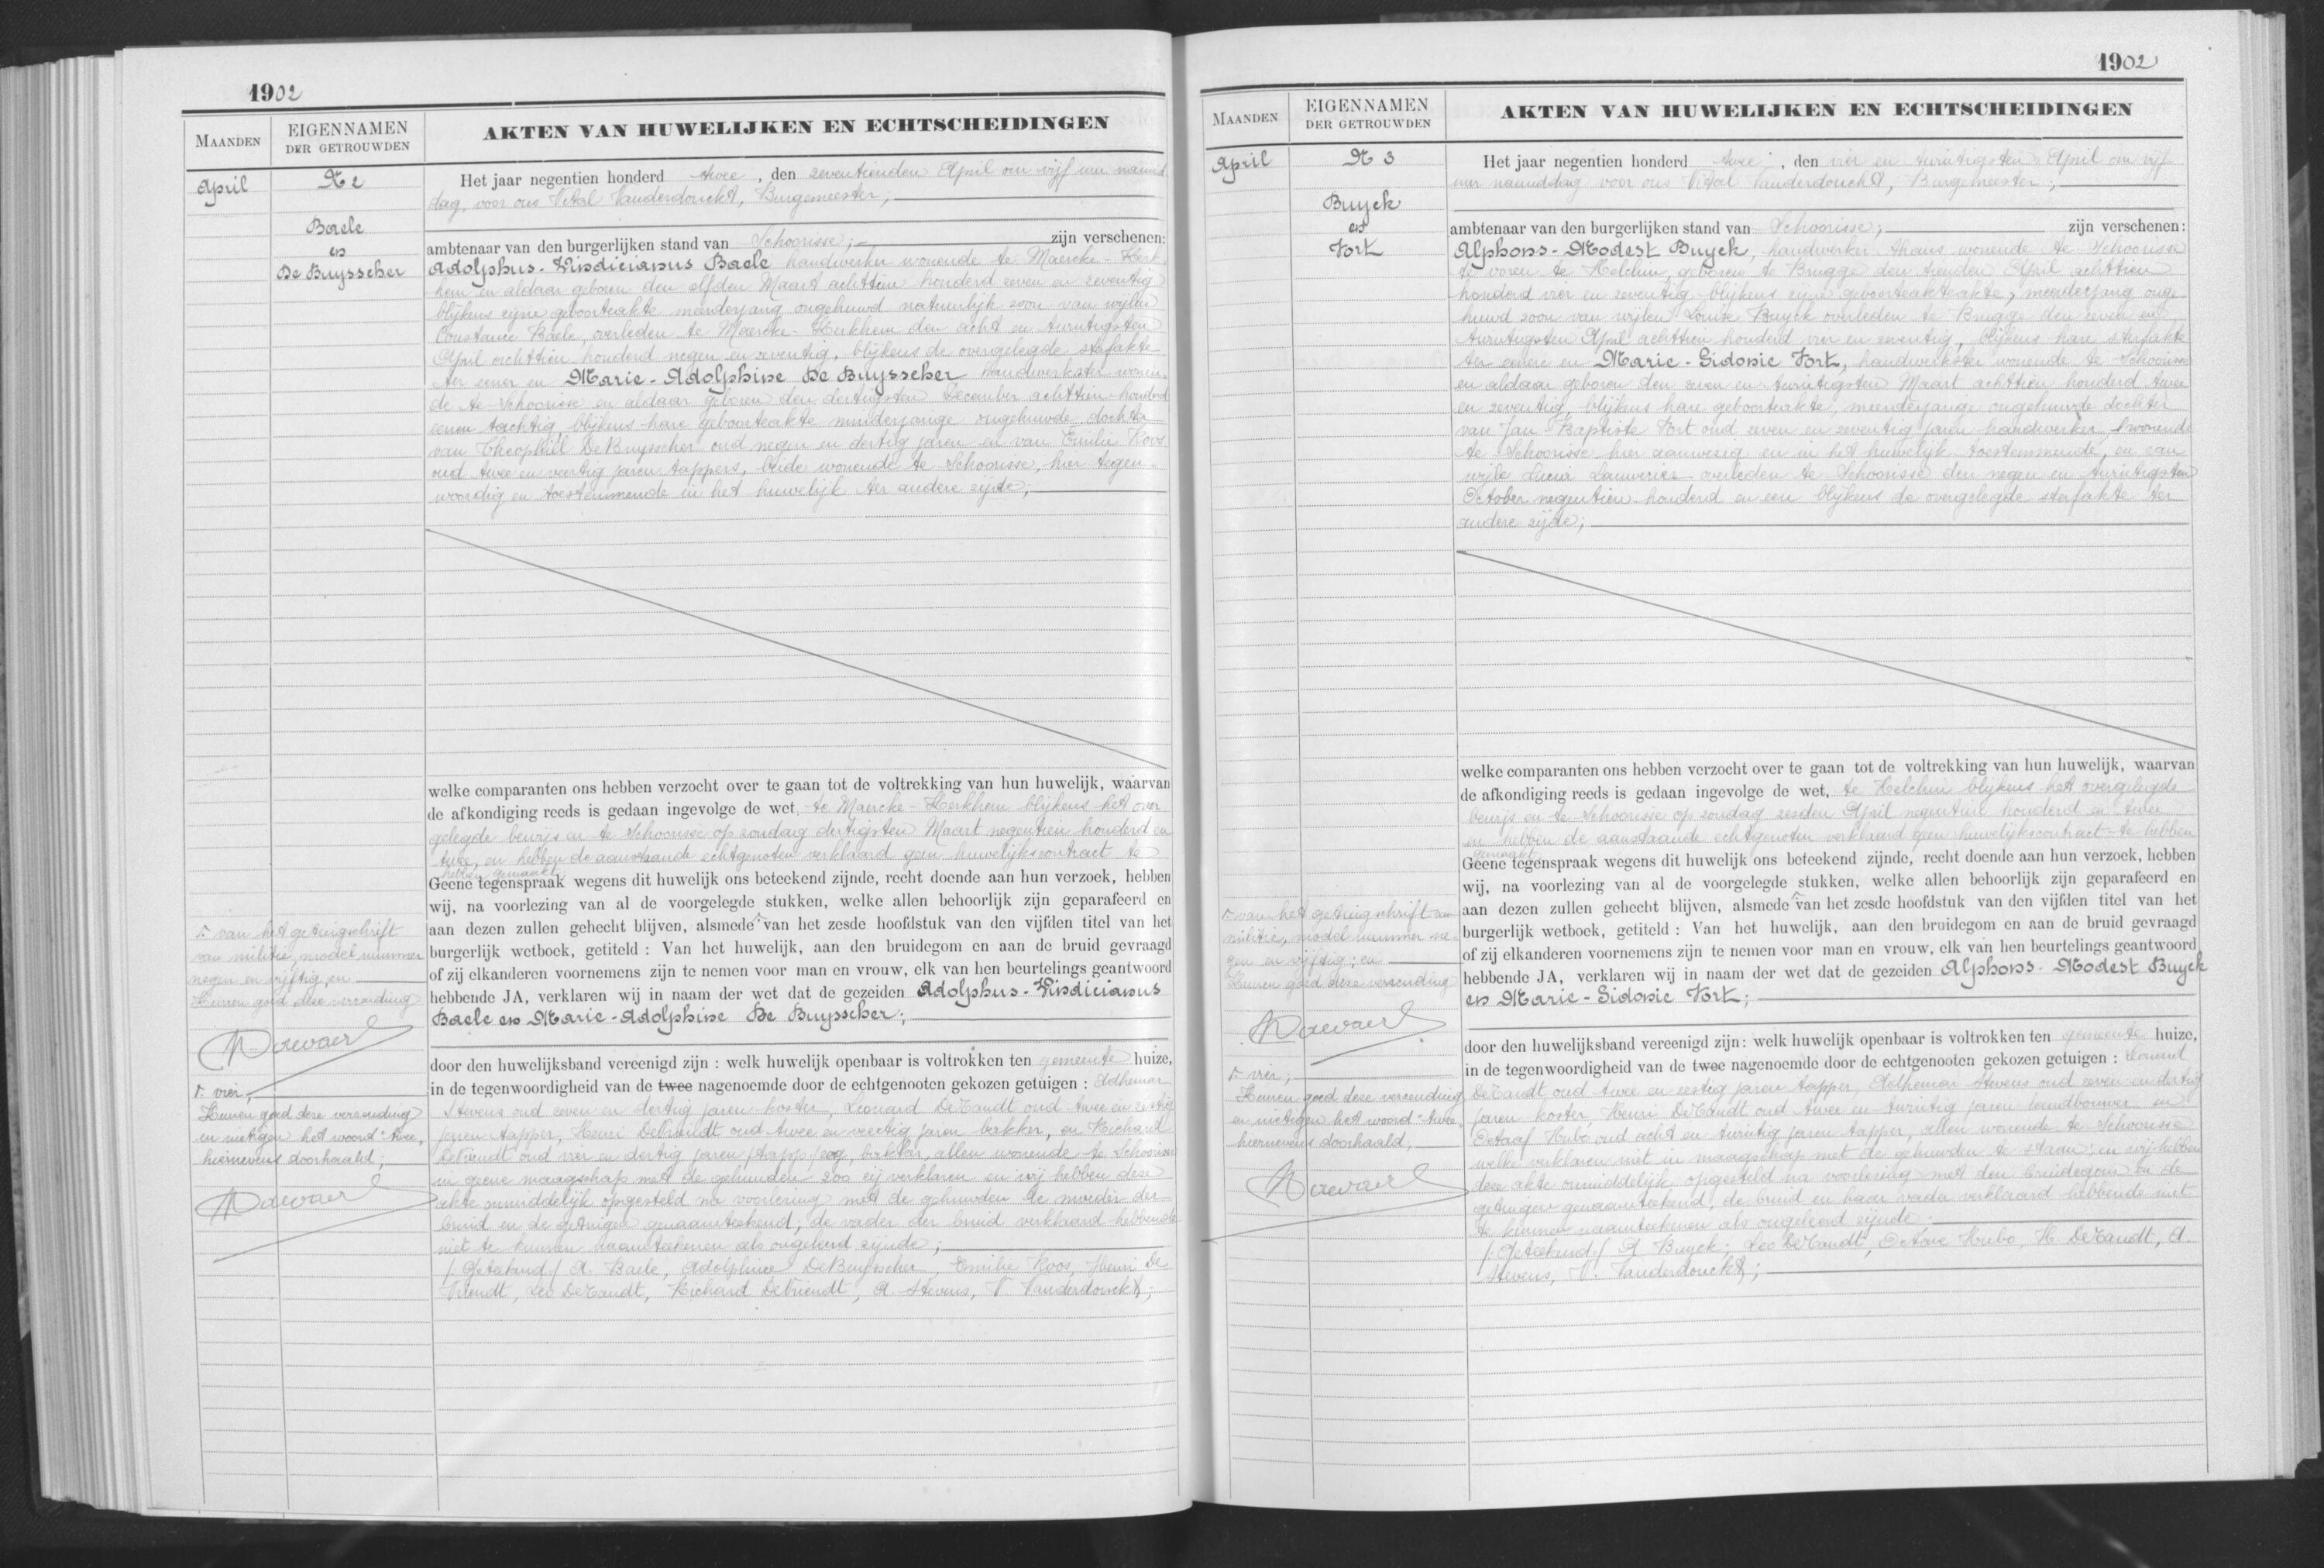 1902
MAANDEN
EIGENNAMEN
DER GETROUWDEN
AKTEN VAN HUWELIJKEN EN ECHTSCHEIDINGEN
April
N 2
Baele
en
De Buysscher
Het jaar negentien honderd twee, den zeventienden April om vijf uur namid
dag, voor ons Vital Vanderdonckt, Burgemeester;
ambtenaar van den burgerlijken stand van Schoorisse; zijn verschenen:
Adolphus-Vindicianus Baele handwerker wonende te Maercke-Kerk
hem en aldaar geboren den elfden Maart achttien honderd zeven en zeventig
blijkens zijne geboorteakte meerderjarig ongehuwd natuurlijk zoon van wijlen
Constance Baele, overleden te Maercke-Kerkhem den acht en twintigsten
April achttien honderd negen en zeventig, blijkens de overgelegde sterfakte
ter eener en Marie-Adolphine De Buysscher handwerkster wonen-
de te Schoorisse en aldaar geboren den dertigsten December achttien honderd
eenen tachtig, blijkens hare geboorteakte minderjarige ongehuwde dochter
van Theophiel DeBuysscher oud negen en dertig jaren en van Emilie Roos
oud twee en veertig jaren tappers, beide wonende te Schoorisse, hier tegen-
woordig en toestemmende in het huwelijk ter andere zijde;
welke comparanten ons hebben verzocht over te gaan tot de voltrekking van hun huwelijk, waarvan
de afkondiging reeds is gedaan ingevolge de wet, te Maercke-Kerkhem blijkens het over
gelegde bewijs en te Schoorisse op zondag dertigsten Maart negentien honderd en
twee, en hebben de aanstaande echtgenoten verklaard geen huwelijkscontract te
hebben gemaakt;
Geene tegenspraak wegens dit huwelijk ons beteekend zijnde, recht doende aan hun verzoek, hebben
wij, na voorlezing van al de voorgelegde stukken, welke allen behoorlijk zijn geparafeerd en
aan dezen zullen gehecht blijven, alsmede van het zesde hoofdstuk van den vijfden titel van het
burgerlijk wetboek, getiteld : Van het huwelijk, aan den bruidegom en aan de bruid gevraagd
of zij elkanderen voornemens zijn te nemen voor man en vrouw, elk van hen beurtelings geantwoord
hebbende JA, verklaren wij in naam der wet dat de gezeiden Adolphus-Vindicianus
Baele en Marie-Adolphine De Buysscher;
door den huwelijksband vereenigd zijn : welk huwelijk openbaar is voltrokken ten gemeente huize,
in de tegenwoordigheid van de twee nagenoemde door de echtgenooten gekozen getuigen : Adhemar
Stevens oud zeven en dertig jaren koster, Leonard DeTandt oud twee en zestig
jaren tapper, Henri DeVriendt oud twee en veertig jaren bakker, en Richard
DeVriendt oud vier en dertig jaren bakker, allen wonende te Schoorisse
in geene maagschap met de gehuwden zoo zij verklaren en wij hebben deze
akte onmiddelijk opgesteld na voorlezing met de gehuwden de moeder der
bruid en de getuigen genaamteekend, de vader der bruid verklaard hebbende
niet te kunnen naamteekenen als ongeleerd zijnde;
/Geteekend/ A. Baele, Adolphine DeBuysscher, Emilie Roos, Henri De
Vriendt, Leo DeTandt, Richard DeVriendt, A. Stevens, V. Vanderdonckt;
van het getuigschrift
van militie, model nummer
negen en vijftig, en
Keuren goed deze verzending
vier,
Keuren goed deze verzending
en nietigen het woord "twee"
hiernevens doorhaald;
1902
MAANDEN
EIGENNAMEN
DER GETROUWDEN
AKTEN VAN HUWELIJKEN EN ECHTSCHEIDINGEN
April
N 3
Buyck
en
Vort
Het jaar negentien honderd twee, den vier en twintigsten April om vijf
uur namiddag voor ons Vital Vanderdonckt, Burgemeester;
ambtenaar van den burgerlijken stand van Schoorisse; zijn verschenen:
Alphons-Modest Buyck, handwerker thans wonende te Schoorisse
te voren te Helchin, geboren te Brugge den tienden April achttien
honderd vier en zeventig blijkens zijne geboorteakteakte, meerderjarig onge
huwd zoon van wijlen Louise Buyck overleden te Brugge den zeven en
twintigsten April achttien honderd vier en zeventig, blijkens hare sterfakte
ter eenere en Marie-Sidonie Vort, handwerkster wonende te Schoorisse
en aldaar geboren den zeven en twintigsten Maart achttien honderd twee
en zeventig, blijkens hare geboorteakte, meerderjarige ongehuwde dochter
van Jan-Baptiste Vort oud zeven en zeventig jaren handwerker, wonende
te Schoorisse hier aanwezig en in het huwelijk toestemmende, en van
wijle Lucia Lauwerier overleden te Schoorisse den negen en twintigsten
October negentien honderd en een blijkens de overgelegde sterfakte ter
andere zijde;
welke comparanten ons hebben verzocht over te gaan tot de voltrekking van hun huwelijk, waarvan
de afkondiging reeds is gedaan ingevolge de wet, te Helchin blijkens het overgelegde
bewijs en te Schoorisse op zondag zesden April negentien honderd en twee
en hebben de aanstaande echtgenoten verklaard geen huwelijkscontract te hebben
gemaakt
Geene tegenspraak wegens dit huwelijk ons beteekend zijnde, recht doende aan hun verzoek, hebben
wij, na voorlezing van al de voorgelegde stukken, welke allen behoorlijk zijn geparafeerd en
aan dezen zullen gehecht blijven, alsmede van het zesde hoofdstuk van den vijfden titel van het
burgerlijk wetboek, getiteld : Van het huwelijk, aan den bruidegom en aan de bruid gevraagd
of zij elkanderen voornemens zijn te nemen voor man en vrouw, elk van hen beurtelings geantwoord
hebbende JA, verklaren wij in naam der wet dat de gezeiden Alphons-Modest Buyck
en Marie-Sidonie Vort;
door den huwelijksband vereenigd zijn : welk huwelijk openbaar is voltrokken ten gemeente huize,
in de tegenwoordigheid van de twee nagenoemde door de echtgenooten gekozen getuigen :
DeTandt oud twee en zestig jaren tapper, Adhemar Stevens oud zeven en dertig
jaren koster, Henri DeTandt oud twee en twintig jaren landbouwer en
Octaaf Hubo oud acht en twintig jaren tapper, allen wonende te Schoorisse
welke verklaren niet in maagschap met de gehuwden te staan; en wij hebben
deze akte onmiddelijk opgesteld na voorlezing met den bruidegom en de
getuigen genaamteekend, de bruid en haar vader verklaard hebbende niet
te kunnen naamteekenen als ongeleerd zijnde;
/Geteekend/ A Buyck; Leo DeTandt, Octave Hubo, H. DeTandt, A.
Stevens, V. Vanderdonckt;
van het getuigschrift van
militie, model nummer ne-
gen en vijftig; en
Keuren goed deze verzending
vier;
Keuren goed deze verzending
en nietigen het woord "twee"
hiernevens doorhaald,